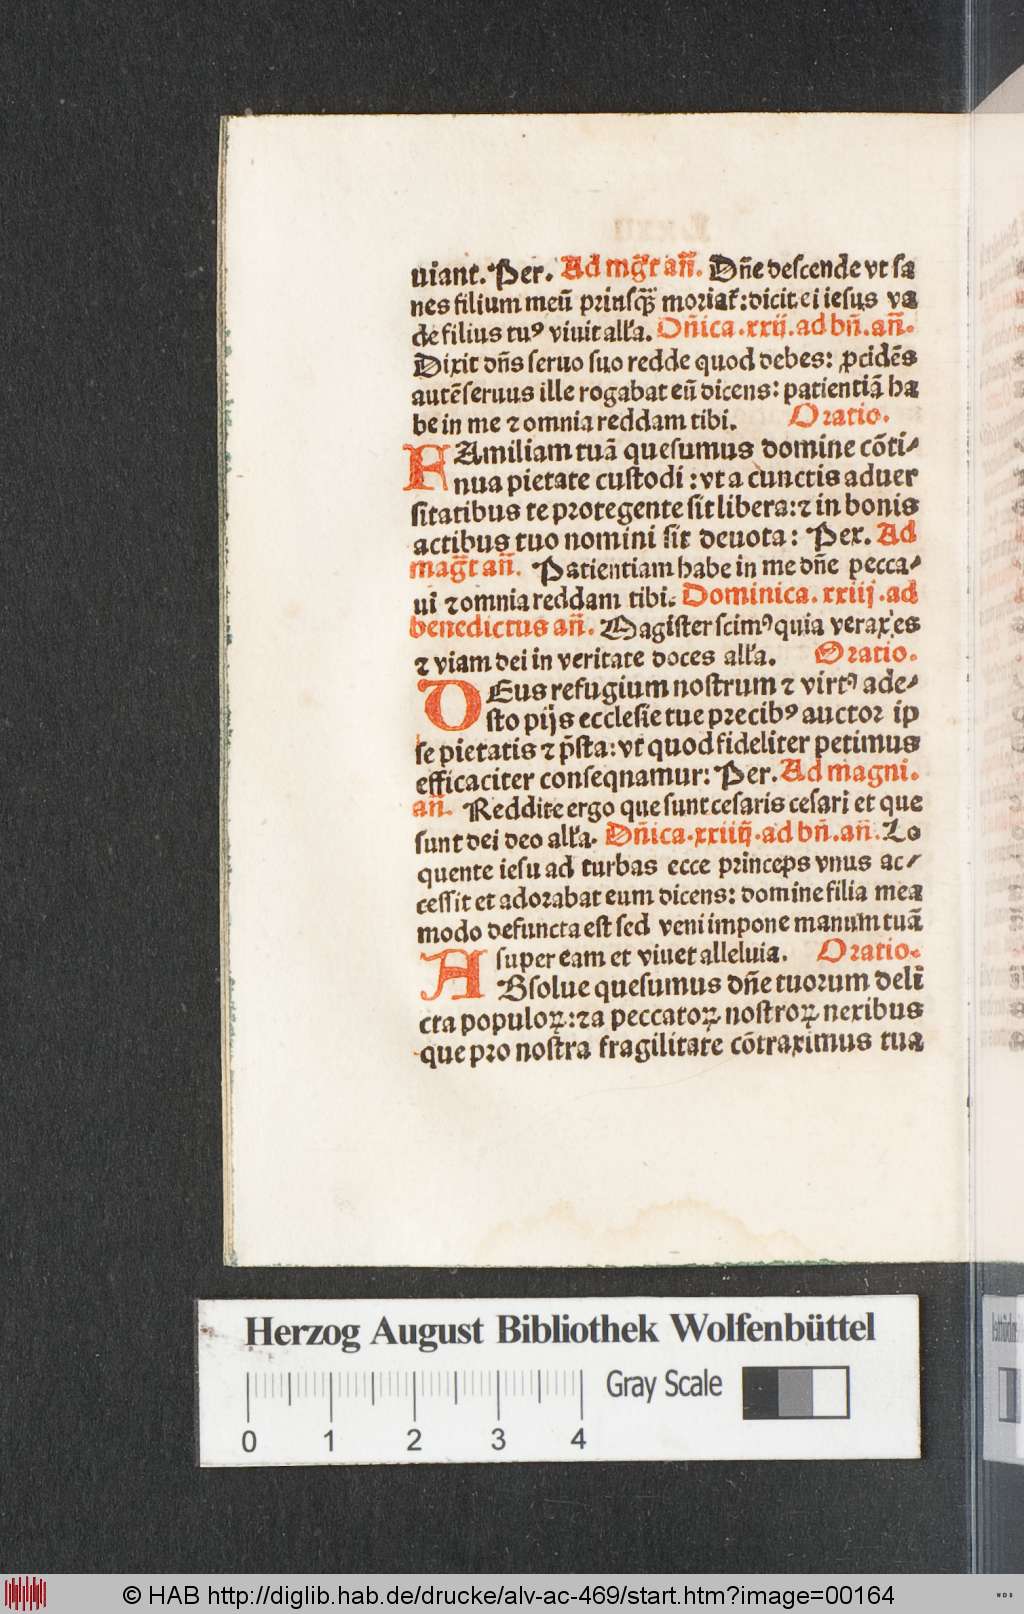 uiant. Per. Ad mg̃t añ. Dñe descende vt sa
nes filium meũ priusq̃ʒ moriat᷑: dicit ei iesus va
de filius tuꝰ viuit alľa. Dñica .xxij. ad bñ. añ.
Dixit dñs seruo suo redde quod debes: ꝓcidẽs
autẽ seruus ille rogabat eũ dicens: patientiã ha
be in me ⁊ omnia reddam tibi. Oratio.
FAmiliam tuã quesumus domine cõti⸗
nua pietate custodi : vt a cunctis aduer
sitatibus te protegente sit libera: ⁊ in bonis
actibus tuo nomini sit deuota : Per. Ad
mag̃t añ. Patientiam habe in me dñe pecca⸗
ui ⁊ omnia reddam tibi. Dominica. xxiij. ad
benedictus añ. Magister scimꝰ quia verax es
⁊ viam dei in veritate doces alľa. Oratio.
DEus refugium nostrum ⁊ virtꝰ ade⸗
sto pijs ecclesie tue precibꝰ auctor ip
se pietatis ⁊ p̃sta: vt quod fideliter petimus
efficaciter conseqnamur: Per. Ad magni.
añ. Reddite ergo que sunt cesaris cesari et que
sunt dei deo alľa. Dñica. xxiiij. ad bñ. añ. Lo
quente iesu ad turbas ecce princeps vnus ac⸗
cessit et adorabat eum dicens: domine filia mea
modo defuncta est sed veni impone manum tuã
super eam et viuet alleluia. Oratio.
ABsolue quesumus dñe tuorum deli
cta populoꝝ: ⁊ a peccatoꝝ nostroꝝ nexibus
que pro nostra fragilitate cõtraximus tua
Herzog August Bibliothek Wolfenbüttel
Gray Scale
0 1 2 3 4
© HAB http://diglib.hab.de/drucke/alv-ac-469/start.htm?image=00164